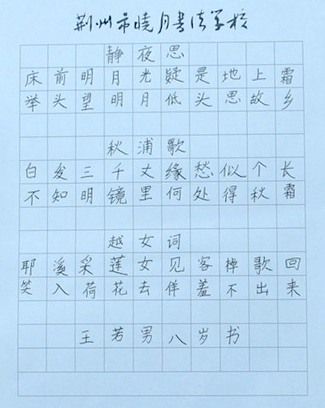 荆州市晓月书法学校
静夜思
床前明月光疑是地上霜
举头望明月低头思故乡
秋浦歌
白发三千丈缘愁似个长
不知明镜里何处得秋霜
越女词
耶溪采莲女见客棹歌回
笑入荷花去佯羞不出来
王若男八岁书